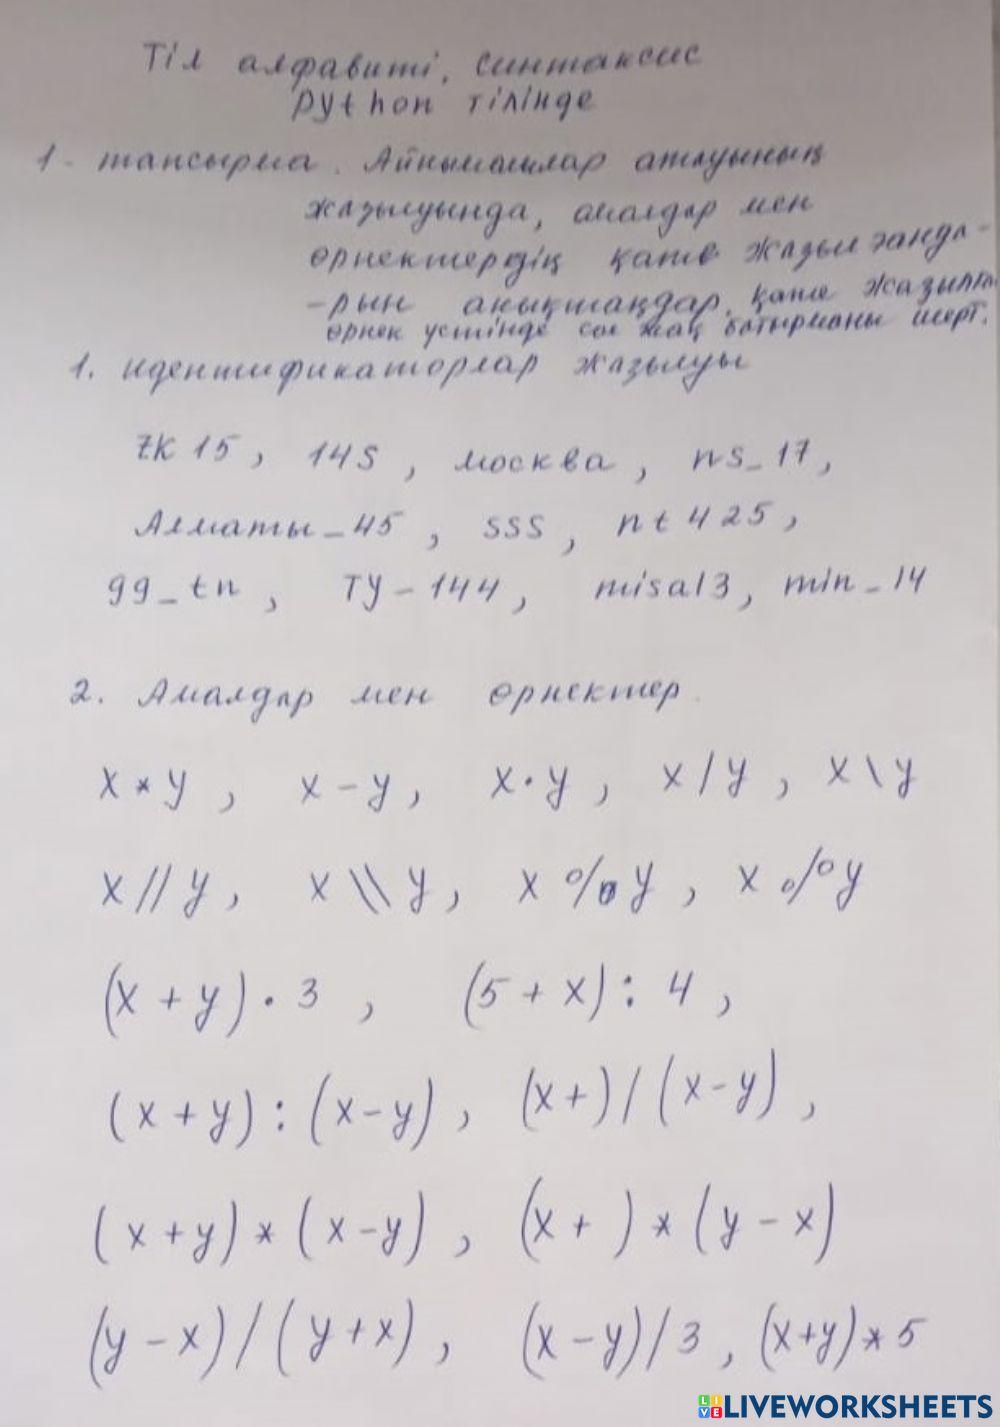 Тіл алфавиті, синтаксис
python тілінде
1-тапсырма. Айнымалылар атауының
жазылуында, амалдар мен
өрнектердің қате жазылғанда-
-рын анықтаңдар, қате жазылған
өрнек үстінде сол жақ батырманы шерт.
1. идентификаторлар жазылуы
ZK 15, 14S, москва, ns_17,
Алматы_45, SSS, nt 425,
gg_tn, TY-144, misal3, min_14
2. Амалдар мен өрнектер.
x*y, x-y, x·y, x/y, x\y
x//y, x\\y, x%y, x ‰ y
(x+y)·3, (5+x):4,
(x+y):(x-y), (x+)/(x-y),
(x+y)*(x-y), (x+ )*(y-x)
(y-x)/(y+x), (x-y)/3, (x+y)*5
LIVEWORKSHEETS